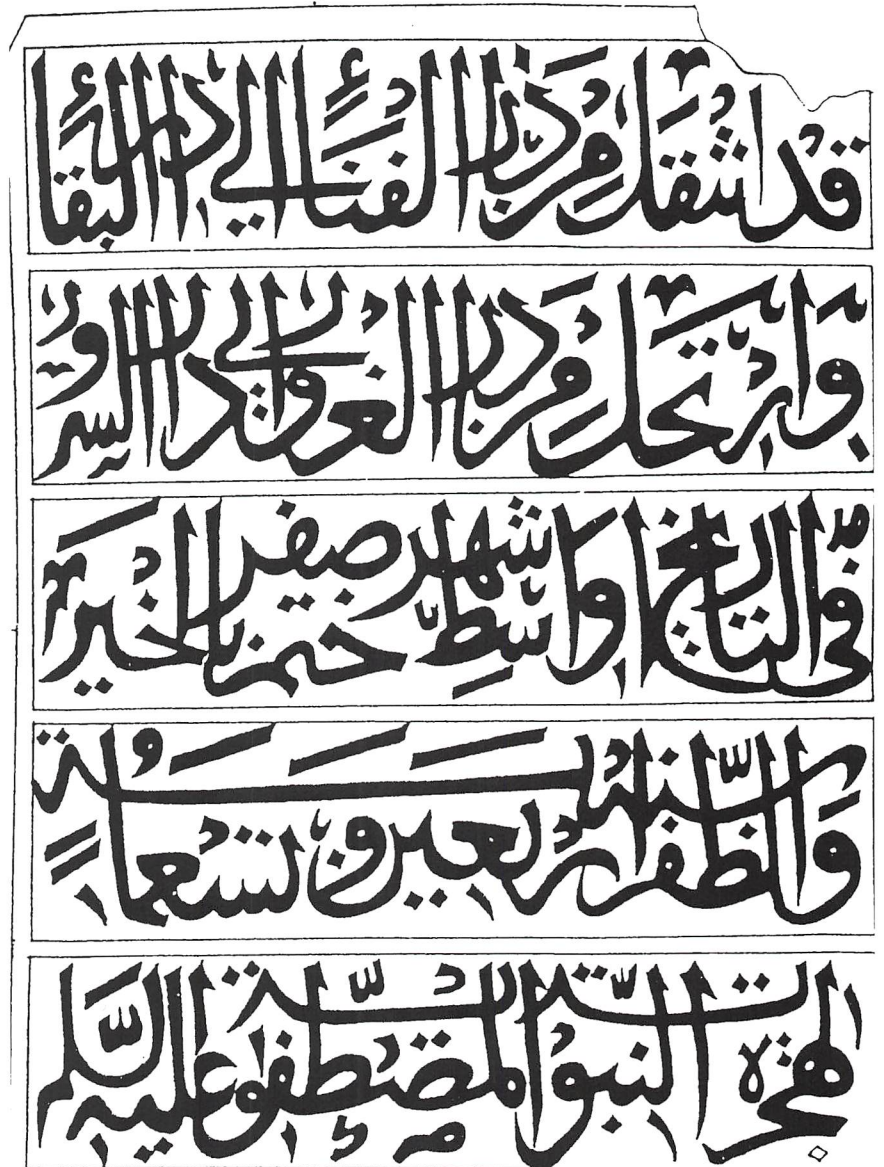 قد انتقل من دار الفناء الى دار البقاء
وارتحل من دار الغرور الى دار السرور
في التاريخ اواسط شهر صفر ختم بالخير
والظفر لسنة اربعين وتسعماية
الهجرة النبوية المصطفوية عليه السلم